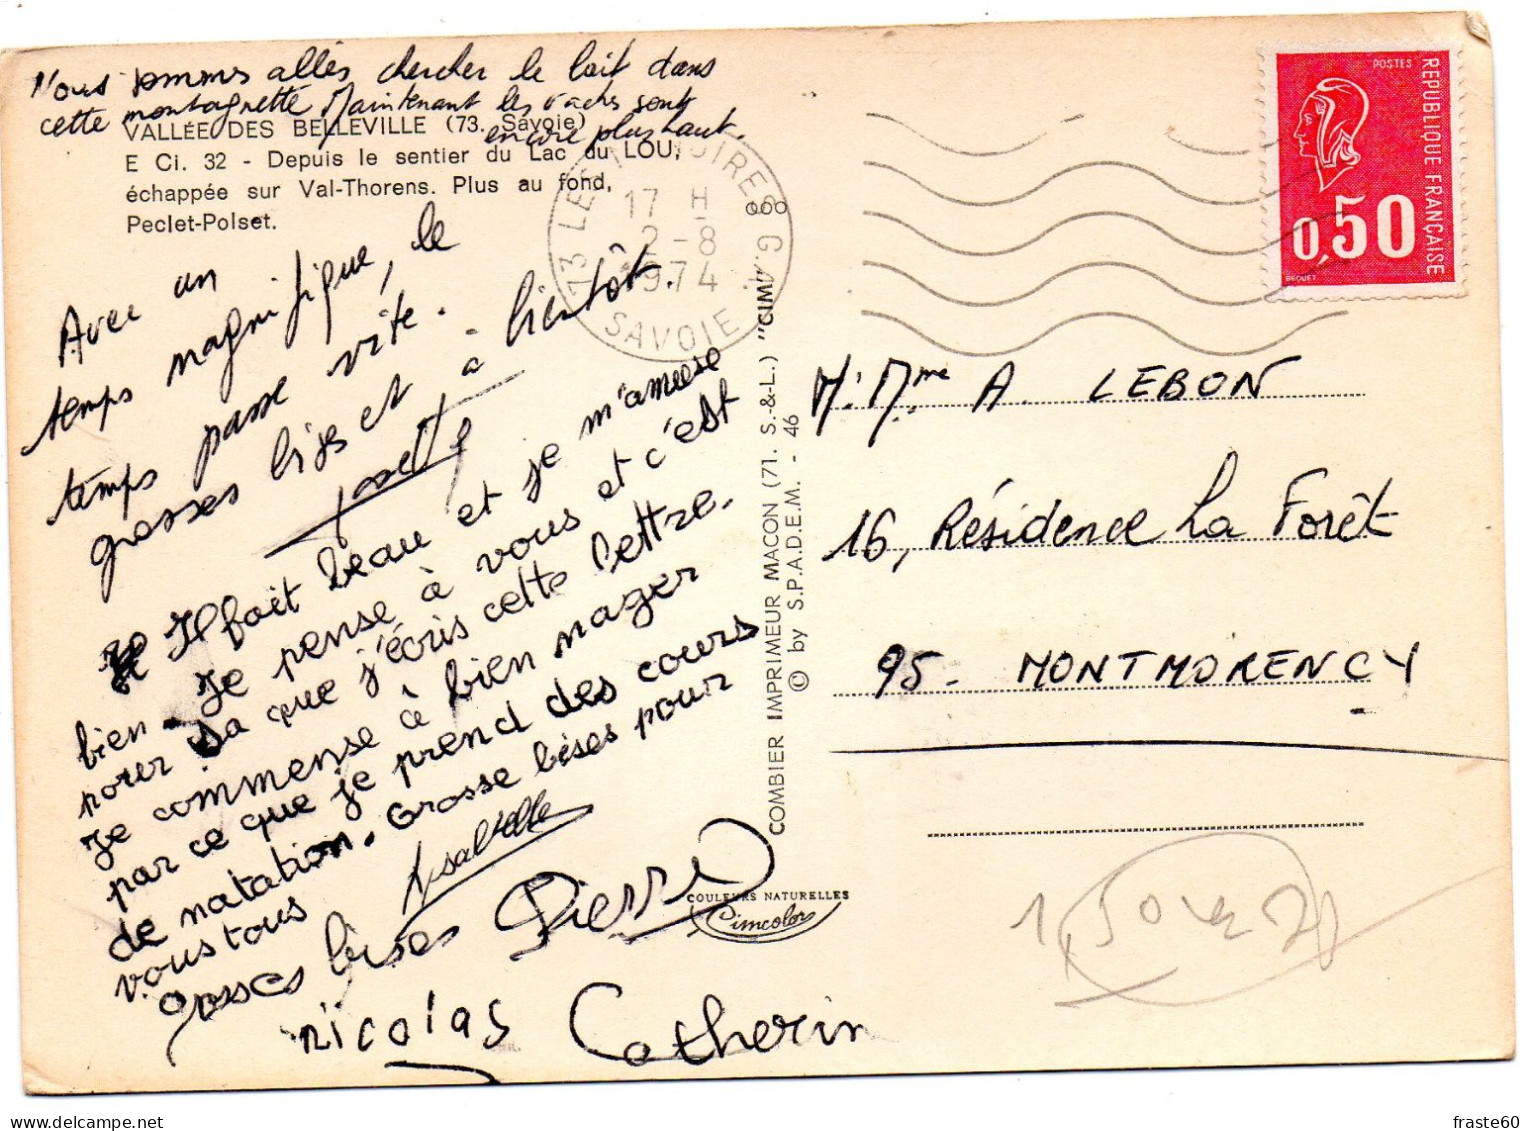 Nous sommes allés chercher le lait dans
cette montagnette Maintenant les vaches sont
encore plus haut.
VALLÉE DES BELLEVILLE (73. Savoie)
E Ci. 32 - Depuis le sentier du Lac du LOU,
échappée sur Val-Thorens. Plus au fond,
Peclet-Polset.
Avec un
temps magnifique, le
temps passe vite.
grosses bises et à bientôt.
Josette
Il fait beau et je m'amuse
bien. Je pense à vous et c'est
pour sa que j'écris cette lettre.
Je commense à bien nager
par ce que je prend des cours
de natation. Grosse bises pour
vous tous
Isabelle
Grosses bises Pierre
nicolas Catherin
73 LES MENUIRES G.A.
17 H
2-8
1974
SAVOIE
COMBIER IMPRIMEUR MACON (71. S.-&-L.) "CIM"
© by S.P.A.D.E.M. - 46
COULEURS NATURELLES
Cimcolor
POSTES
REPUBLIQUE FRANÇAISE
0,50
BEQUET
M. Mme A. LEBON
16, Résidence La Forêt
95. MONTMORENCY
fraste60